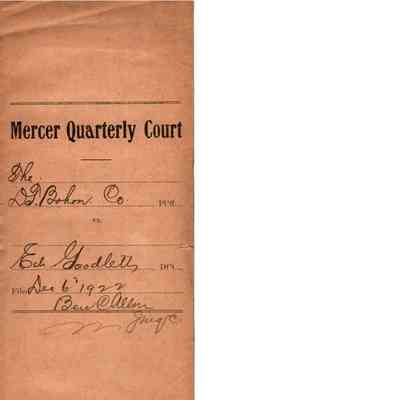 Mercer Quarterly Court
The
D.T. Bohon Co. Pl'ff.
vs.
Ed Goodlett, Df't.
Filed Dec 6" 1922
Ben C Allen
JMQC